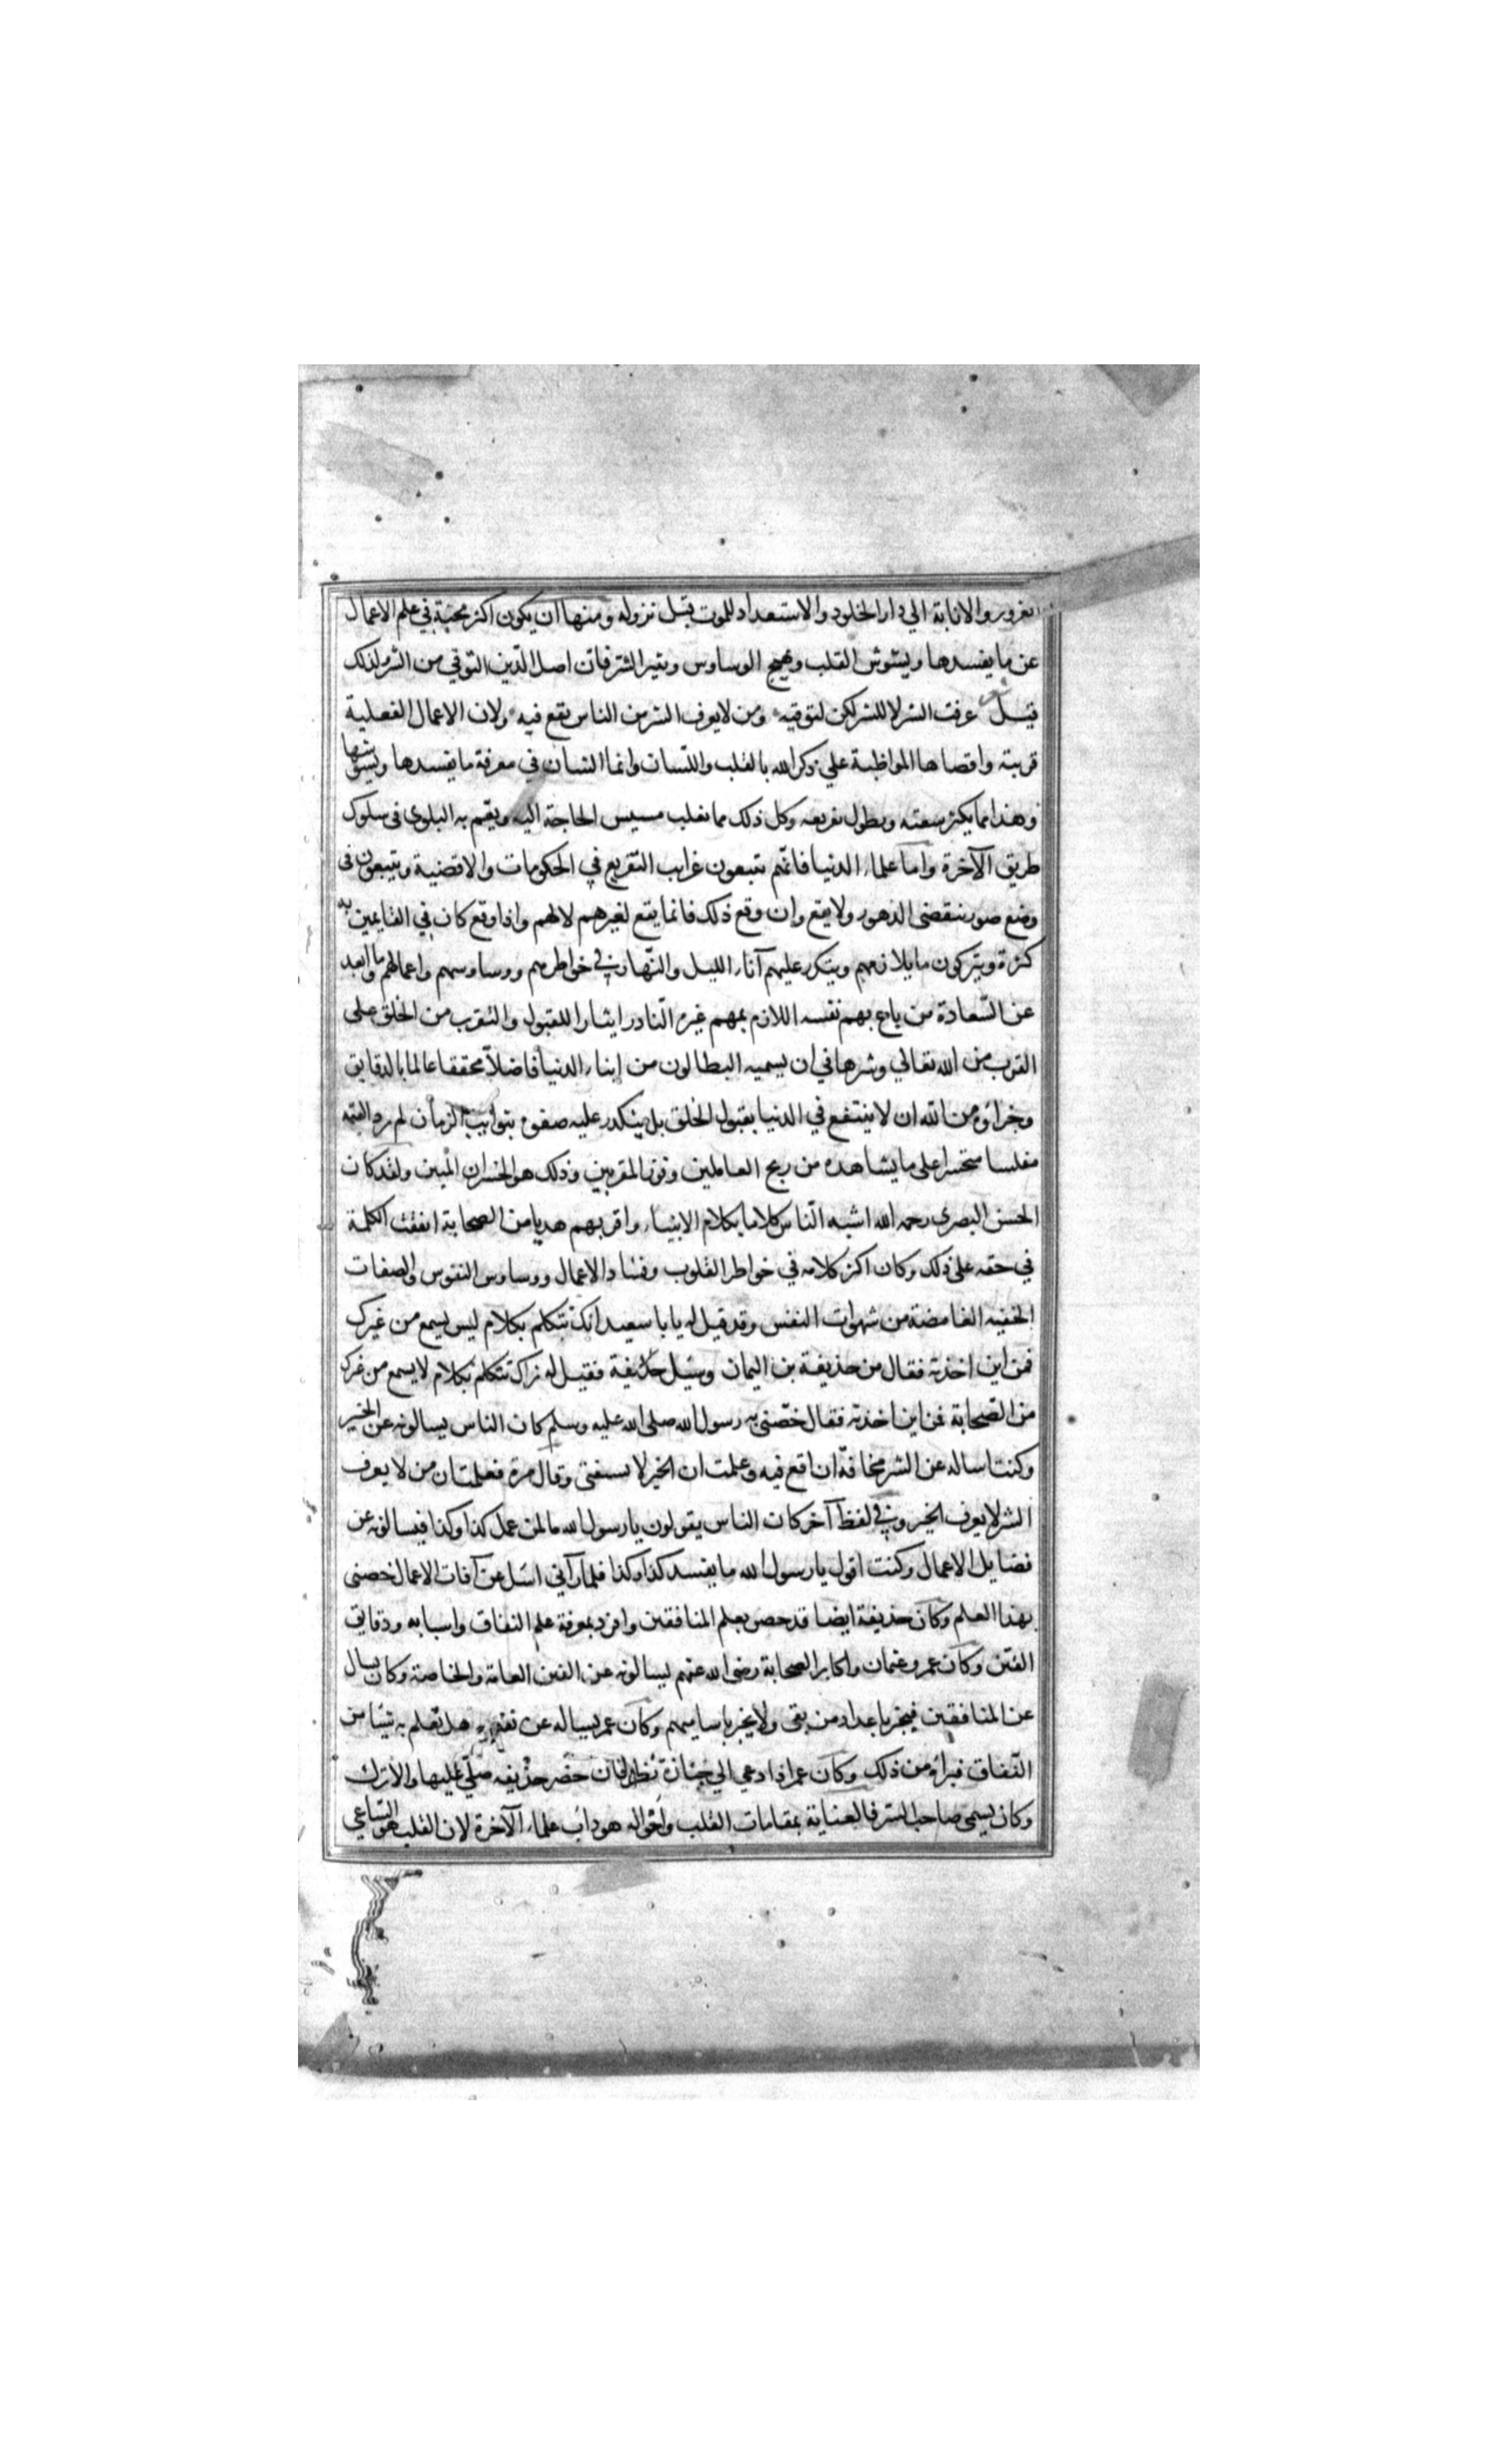 الغرور والانابة الي دار الخلود والاستعداد للموت قبل نزوله ومنها ان يكون اكثر بحثه في علم الاعمال
عن ما يفسدها ويشوش القلب ويهيج الوساوس ويثير الشر فان اصل الدين التوقي من الشر ولذلك
قيل عرفت الشر لا للشر لكن لتوقيه ومن لا يعرف الشر من الناس يقع فيه ولان الاعمال الفعلية
قريبة واقصاها المواظبة علي ذكر الله بالقلب واللسان وانما الشان في معرفة ما يفسدها ويشوشها
وهذا مما يكثر شعبه ويطول تفريعه وكل ذلك مما يغلب مسيس الحاجة اليه ويعم به البلوي في سلوك
طريق الآخرة واما علماء الدنيا فانهم يتبعون غرايب التفريع في الحكومات والاقضية ويتبعون في
وضع صور تنقضي الدهور ولا يقع وان وقع ذلك فانما يقع لغيرهم لا لهم واذا وقع كان في القايمين به
كثرة ويتركون ما يلازمهم ويتكرر عليهم آناء الليل والنهار في خواطرهم ووساوسهم واعمالهم وما ابعد
عن السعادة من باع بهم نفسه اللازم بمهم غيره النادر ايثارا للقبول والتقرب من الخلق علي
القرب من الله تعالي وشرها في ان يسميه البطالون من ابناء الدنيا فاضلا محققا عالما بالدقايق
وجزاؤه من الله ان لا ينتفع في الدنيا بقبول الخلق بل يتكدر عليه صفوه بنوايب الزمان ثم يرد القيمة
مفلسا متحسرا علي ما يشاهده من ربح العاملين وفوز المقربين وذلك هو الخسران المبين ولقد كان
الحسن البصري رحمه الله اشبه الناس كلاما بكلام الانبياء واقربهم هديا من الصحابة اتفقت الكلمة
في حقه علي ذلك وكان اكثر كلامه في خواطر القلوب وفساد الاعمال ووساوس النفوس والصفات
الخفيه الغامضة من شهوات النفس وقد قيل له يا با سعيد انك تتكلم بكلام ليس يسمع من غيرك
فمن اين اخذته فقال من حذيفة بن اليمان وسئل حذيفة فقيل له نراك تتكلم بكلام لا يسمع من غيرك
من الصحابة فمن اين اخذته فقال خصني به رسول الله صلي الله عليه وسلم كان الناس يسالونه عن الخير
وكنت اساله عن الشر مخافة ان اقع فيه وعلمت ان الخير لا يسبقني وقال مرة فعلمت ان من لا يعرف
الشر لا يعرف الخير وفي لفظ آخر كان الناس يقولون يا رسول الله ما لمن عمل كذا وكذا فيسالونه عن
فضايل الاعمال وكنت اقول يا رسول الله ما يفسد كذا وكذا فلما رآني اسئل عن آفات الاعمال خصني
بهذا العلم وكان حذيفة ايضا قد خص بعلم المنافقين وافرد بمعرفة علم النفاق واسبابه ودقايق
الفتن وكان عمر وعثمان واكابر الصحابة رضي الله عنهم يسالونه عن الفتن العامة والخاصة وكان يسال
عن المنافقين فيخبر باعداد من بقي ولا يخبر باساميهم وكان عمر يساله عن نفسه هل تعلم به شيئا من
النفاق فبراه من ذلك وكان عمر اذا دعي الي جنازة نظر فان حضر حذيفه صلي عليها والا ترك
وكان يسمي صاحب السر فالعناية بمقامات القلب واحواله هو داب علماء الآخرة لان القلب هو الساعي